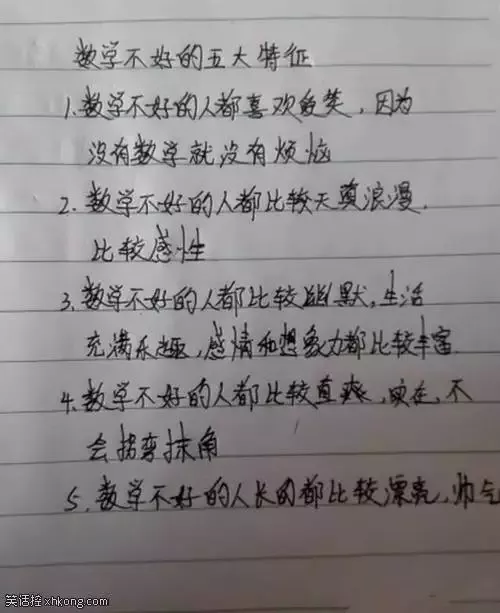 数学不好的五大特征
1.数学不好的人都喜欢傻笑,因为
没有数学就没有烦恼
2.数学不好的人都比较天真浪漫.
比较感性
3.数学不好的人都比较幽默,生活
充满乐趣,感情和想象力都比较丰富
4.数学不好的人都比较直爽,实在,不
会拐弯抹角
5.数学不好的人长的都比较漂亮,帅气
笑话控xhkong.com